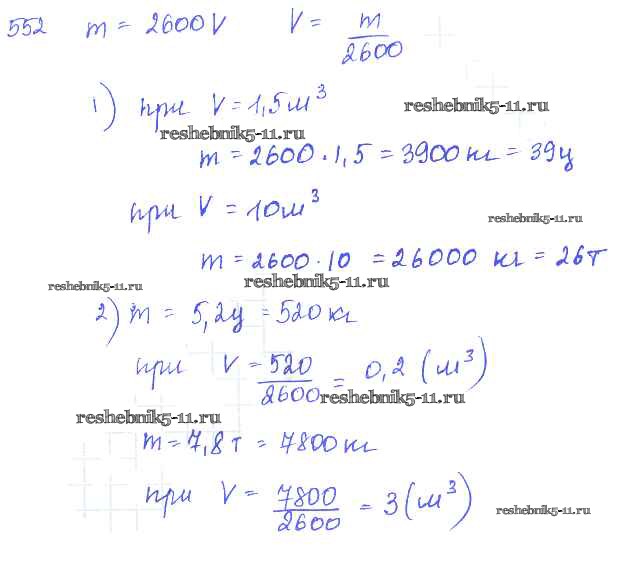 552 m = 2600V V = m/2600
1) при V = 1,5 м³
reshebnik5-11.ru
reshebnik5-11.ru
m = 2600 · 1,5 = 3900 кг = 39 ц
при V = 10 м³
reshebnik5-11.ru
m = 2600 · 10 = 26000 кг = 26 т
reshebnik5-11.ru
reshebnik5-11.ru
2) m = 5,2 ц = 520 кг
при V = 520/2600 = 0,2 (м³)
reshebnik5-11.ru
reshebnik5-11.ru
m = 7,8 т = 7800 кг
при V = 7800/2600 = 3 (м³)
reshebnik5-11.ru